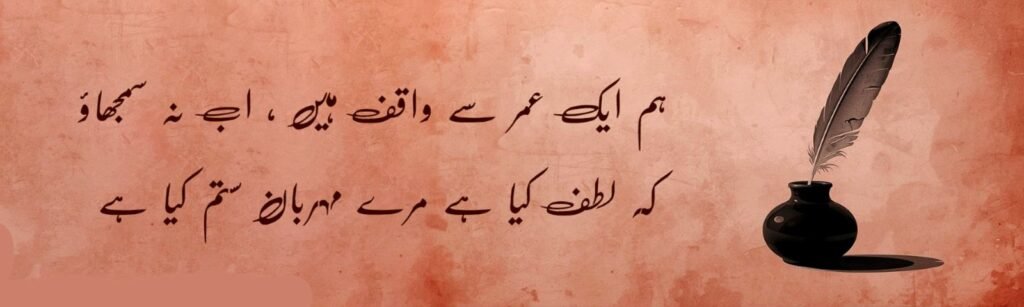 ہم ایک عمر سے واقف ہیں ، اب نہ سمجھاؤ
کہ لطف کیا ہے مرے مہرباں ستم کیا ہے